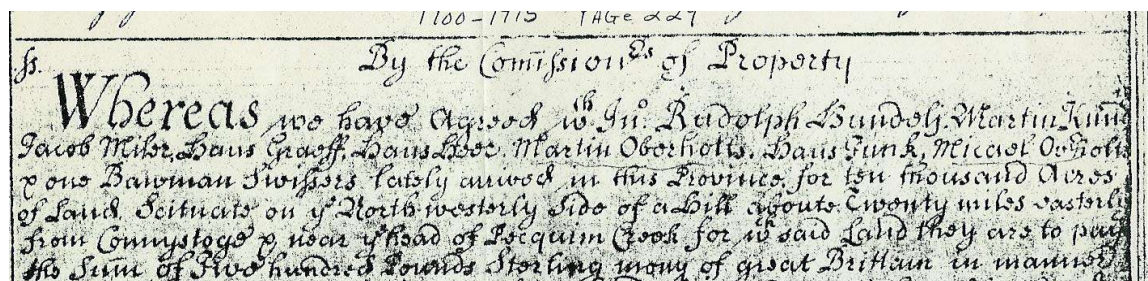 1700-1715 PAGE 227
ss.
By the Com̃ission.rs of Property
Whereas we have Agreed wth Jno. Rudolph Bundely Martin Kund
Jacob Miler, Hans Graeff, Hans Heer, Martin Oberholts, Hans Funk, Micael
& one Bawman Swissers lately arived in this Province for ten thousand Acres
of Land Scituate on ye North westerly Side of a Hill aboute Twenty miles easterly
from Connystoge & near ye head of Pecquim Creek for wch said Land they are to pay
the Sum̃ of Five hundred Pounds Sterling mony of great Brittain in manner